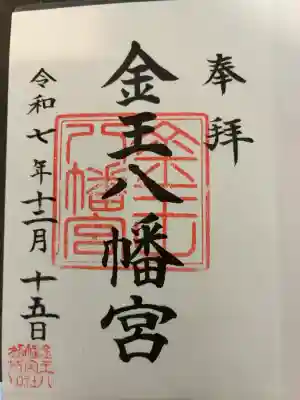 奉拝
金王八幡宮
令和七年十二月十五日
金王八幡宮